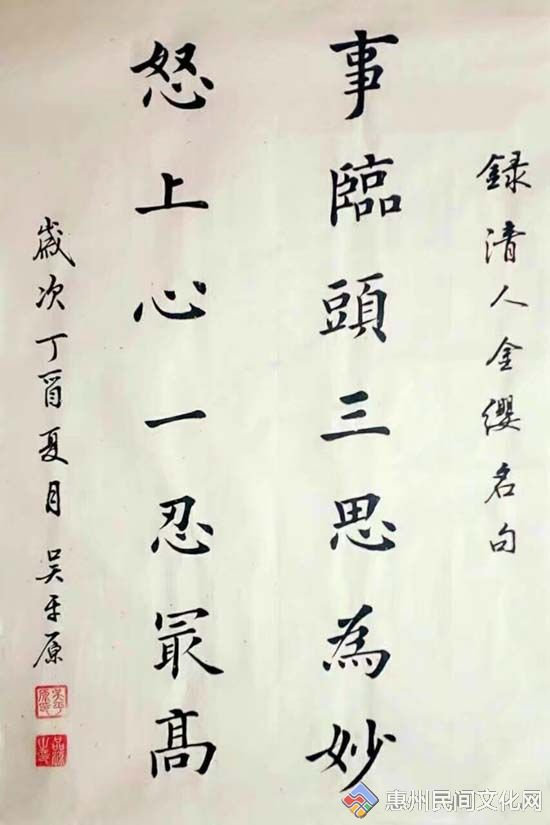 録清人金纓名句
事臨頭三思為妙
怒上心一忍冣髙
歲次丁酉夏月 吴平原
惠州民间文化网